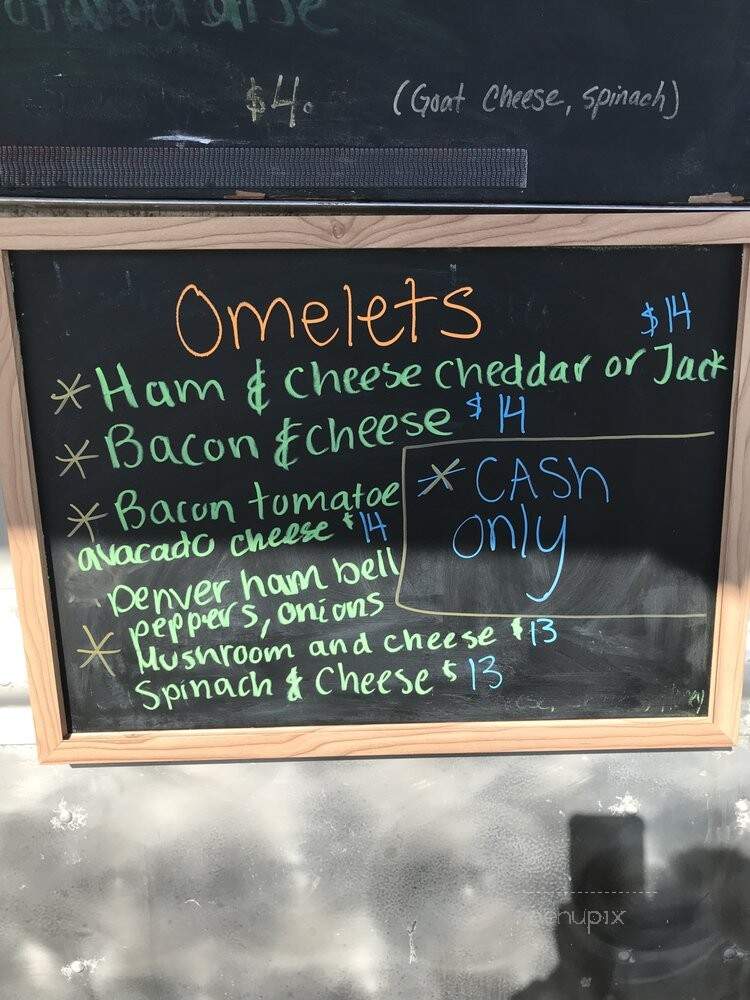 $4.
(Goat Cheese, spinach)
Omelets
$14
*Ham & cheese cheddar or Jack
*Bacon & cheese $14
*Bacon tomatoe
avacado cheese $14
*CASH
only
Denver ham bell
peppers, onions
*Mushroom and cheese $13
Spinach & Cheese $13
menupix